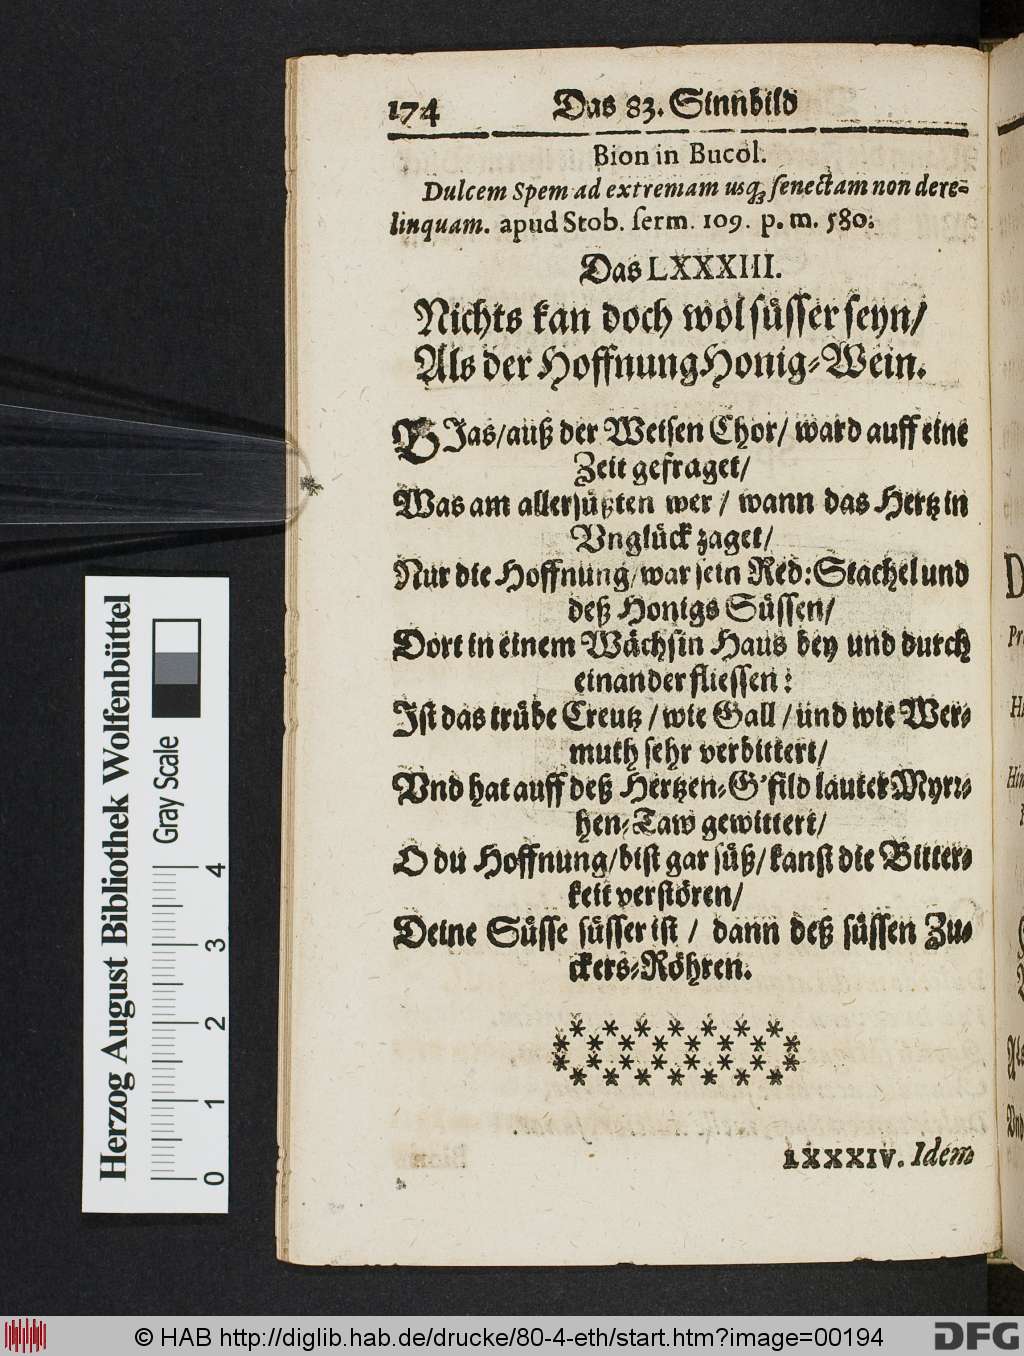 174 Das 83. Sinnbild
Bion in Bucol.
Dulcem Spem ad extremam usq; senectam non dere-
linquam. apud Stob. serm. 109. p. m. 580.
Das LXXXIII.
Nichts kan doch wol süsser seyn/
Als der Hoffnung Honig-Wein.
BIas/auß der Weisen Chor/ ward auff eine
Zeit gefraget/
Was am allersüßten wer / wann das Hertz in
Vnglück zaget/
Nur die Hoffnung/war sein Red: Stachel und
deß Honigs Süssen/
Dort in einem Wächsin Haus bey und durch
einander fliessen:
Ist das trübe Creutz /wie Gall /und wie Wer-
muth sehr verbittert/
Vnd hat auff deß Hertzen-G'fild lauter Myrr-
hen-Taw gewittert/
O du Hoffnung/bist gar süß/kanst die Bitter-
keit verstören/
Deine Süsse süsser ist / dann deß süssen Zu-
ckers-Röhren.
LXXXIV. Idem
Herzog August Bibliothek Wolfenbüttel
Gray Scale
0 1 2 3 4
© HAB http://diglib.hab.de/drucke/80-4-eth/start.htm?image=00194
DFG